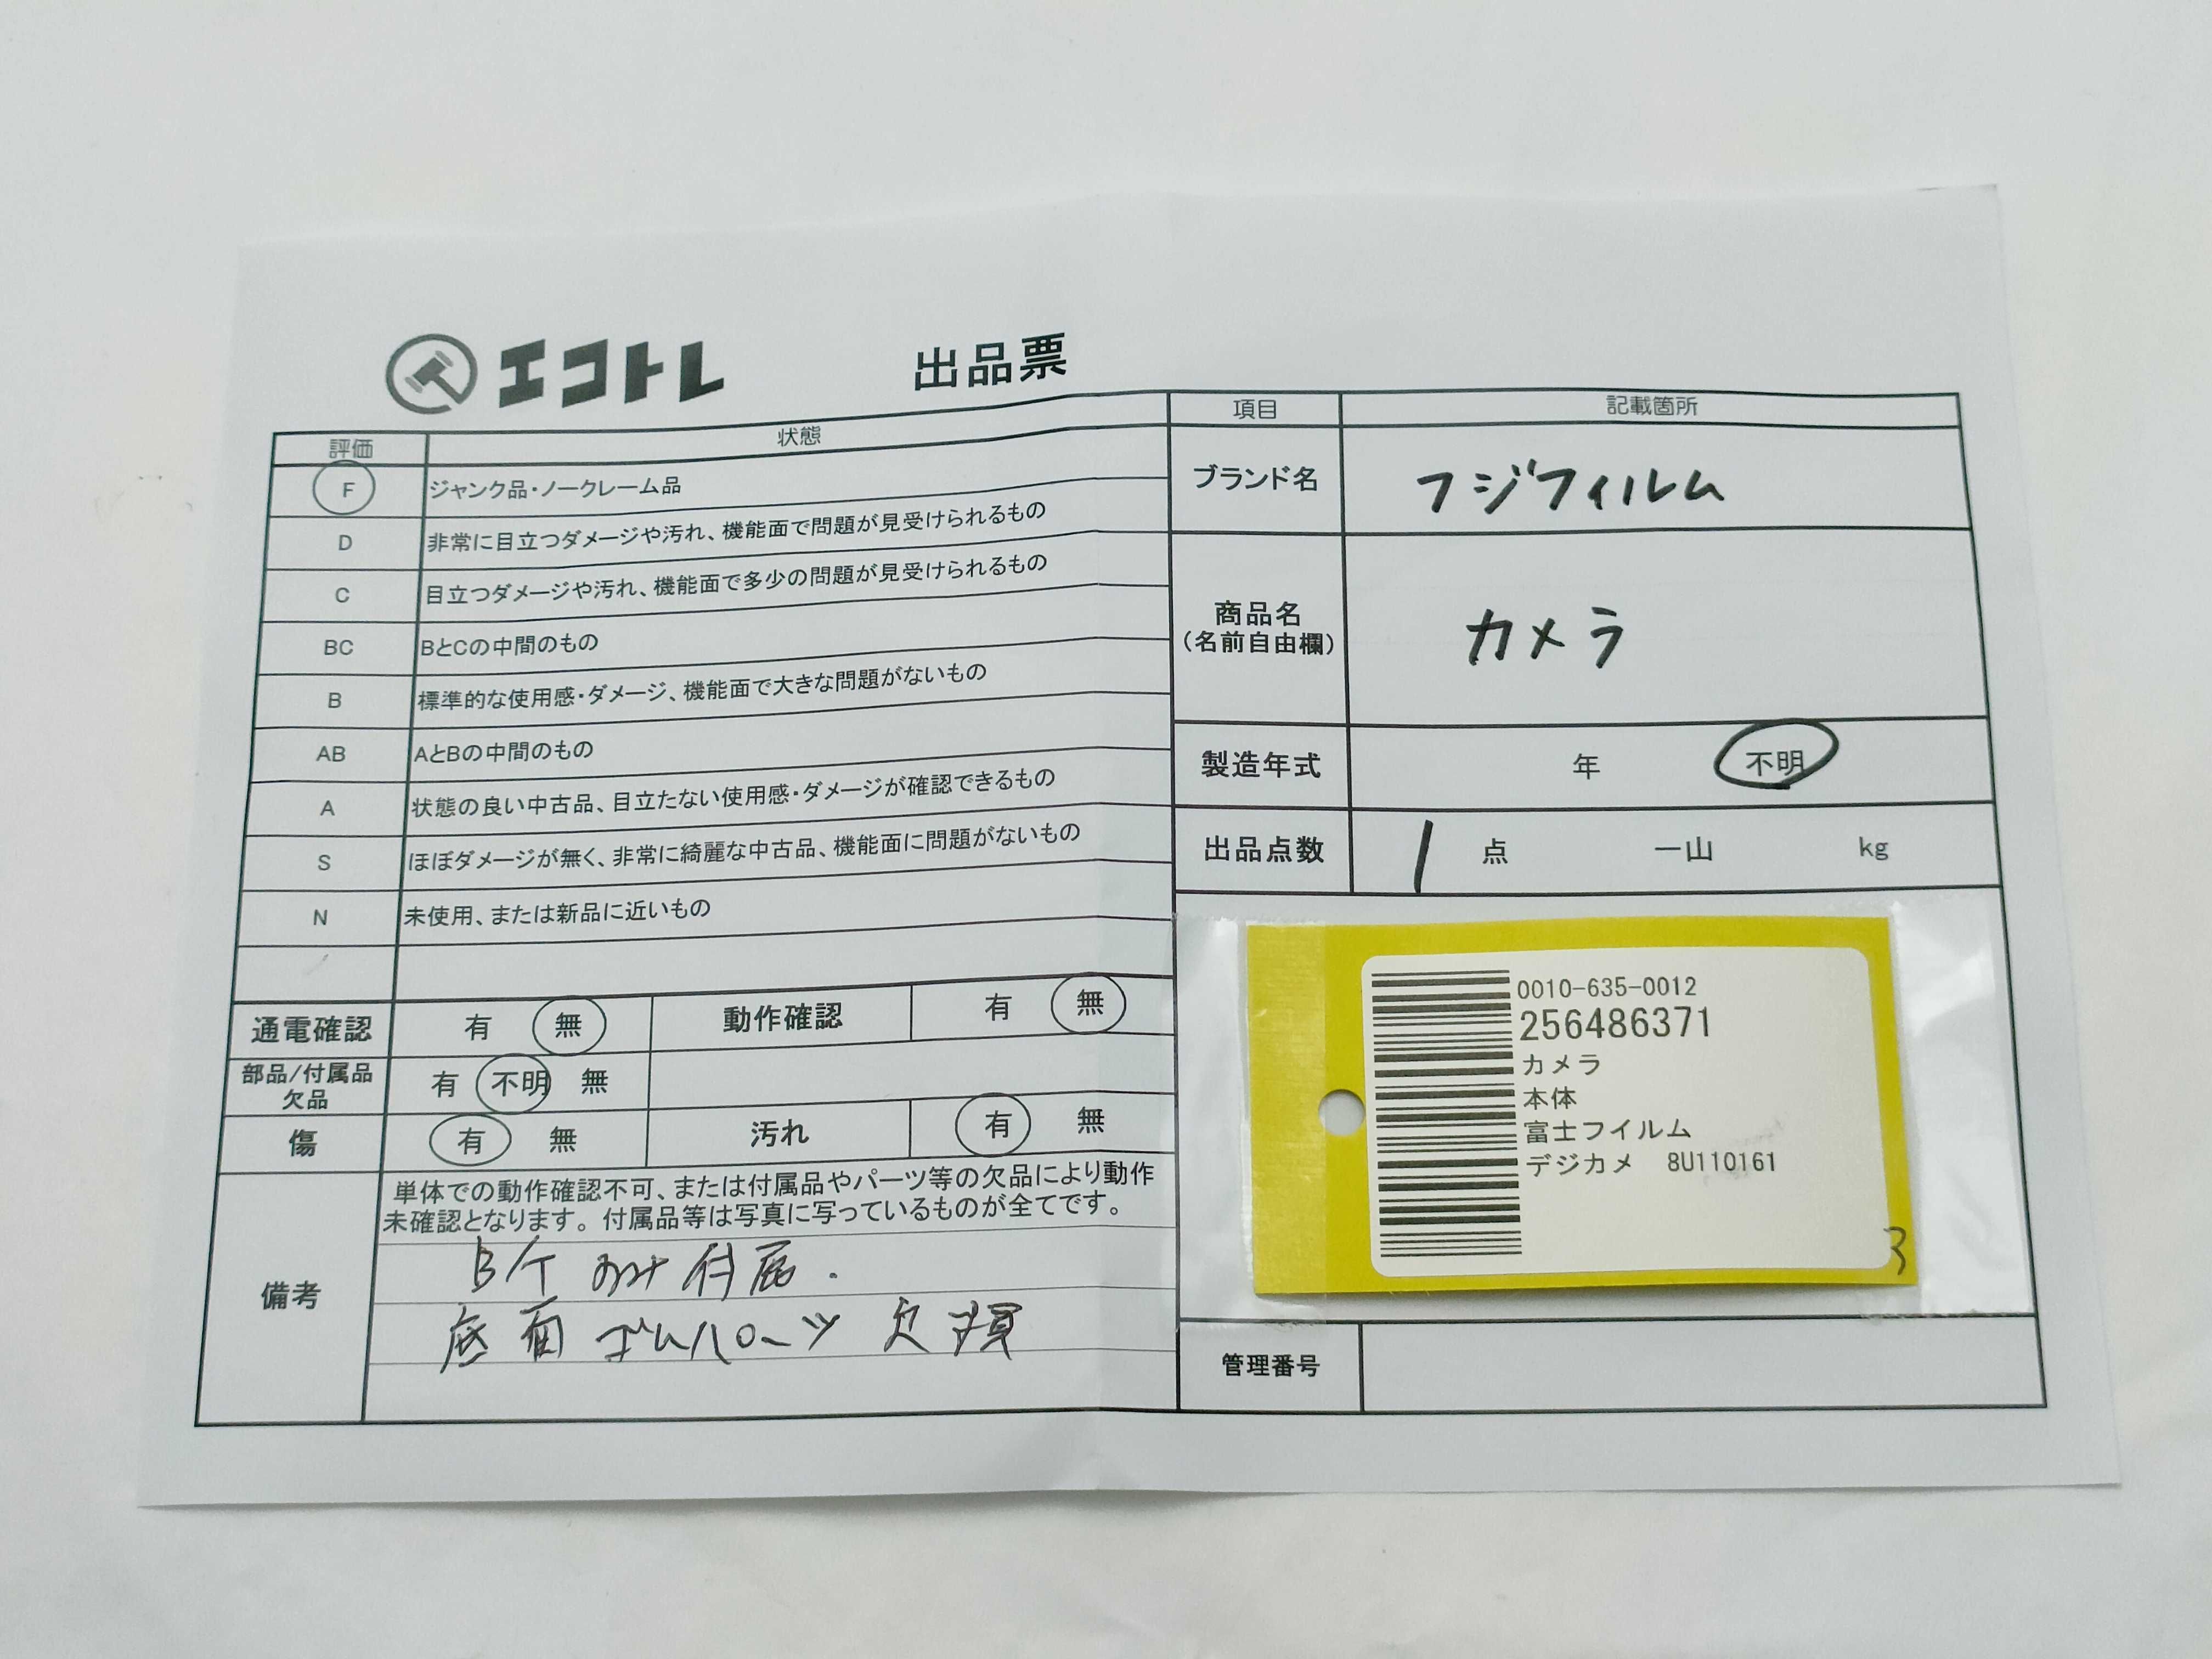 エコトレ 出品票
評価 状態
F ジャンク品・ノークレーム品
D 非常に目立つダメージや汚れ、機能面で問題が見受けられるもの
C 目立つダメージや汚れ、機能面で多少の問題が見受けられるもの
BC BとCの中間のもの
B 標準的な使用感・ダメージ、機能面で大きな問題がないもの
AB AとBの中間のもの
A 状態の良い中古品、目立たない使用感・ダメージが確認できるもの
S ほぼダメージが無く、非常に綺麗な中古品、機能面に問題がないもの
N 未使用、または新品に近いもの
通電確認 有 無 動作確認 有 無
部品/付属品
欠品
有 不明 無
傷 有 無 汚れ 有 無
備考
単体での動作確認不可、または付属品やパーツ等の欠品により動作
未確認となります。付属品等は写真に写っているものが全てです。
付属.
底面ゴムパーツ欠損
項目 記載箇所
ブランド名 フジフィルム
商品名
(名前自由欄)
カメラ
製造年式 年 不明
出品点数 1 点 一山 kg
0010-635-0012
256486371
カメラ
本体
富士フイルム
デジカメ 8U110161
3
管理番号